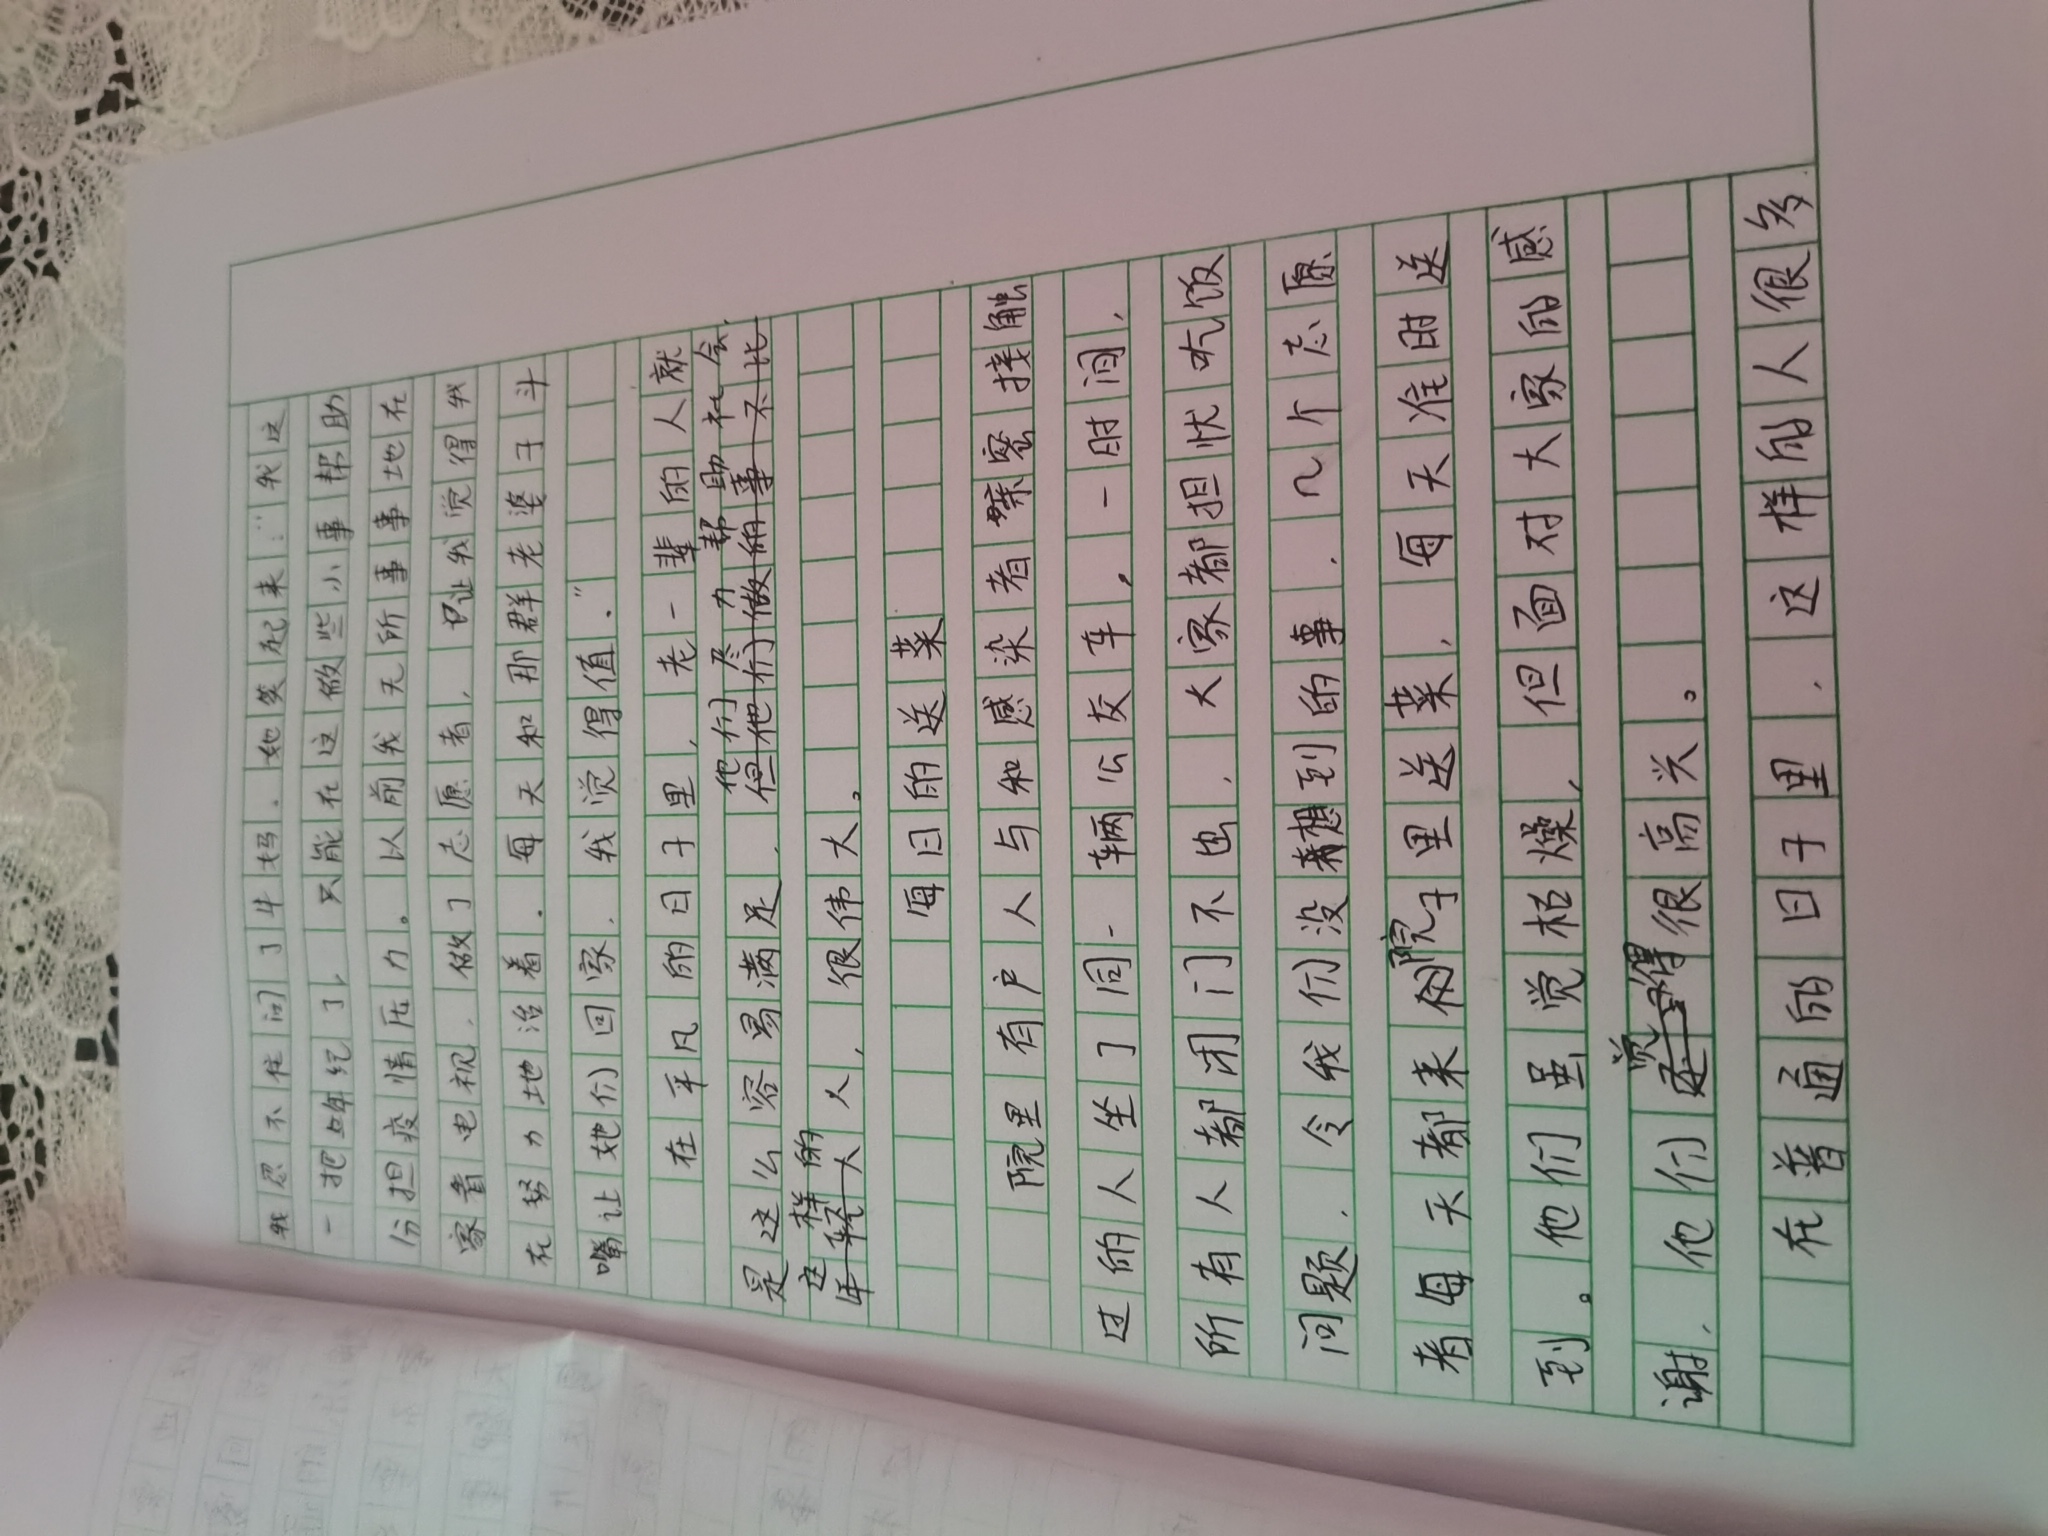 我忍不住问了斗妈，她笑起来：“我这
一把年纪了，只能在这做些小事帮助
份担疫情压力。以前我无所事事地在
家看电视，做了志愿者，只让我觉得我
在努力地活着，每天和那群老婆子斗
嘴让她们回家，我觉得值。”
在平凡的日子里，老一辈的人就
是这么容易满足，他们尽力帮助社会，
但他们做的事不比
这样的人，很伟大。
年轻人
每日的送菜
院里有户人与和感染者密接触
过的人坐了同一辆公交车，一时间，
所有人都闭门不出，大家都担忧吃饭
问题，令我们没想到的事，几个志愿
者每天都来院子里送菜，每天准时送
到。他们虽觉枯燥，但面对大家的感
谢，他们觉得很高兴。
在普通的日子里，这样的人很多